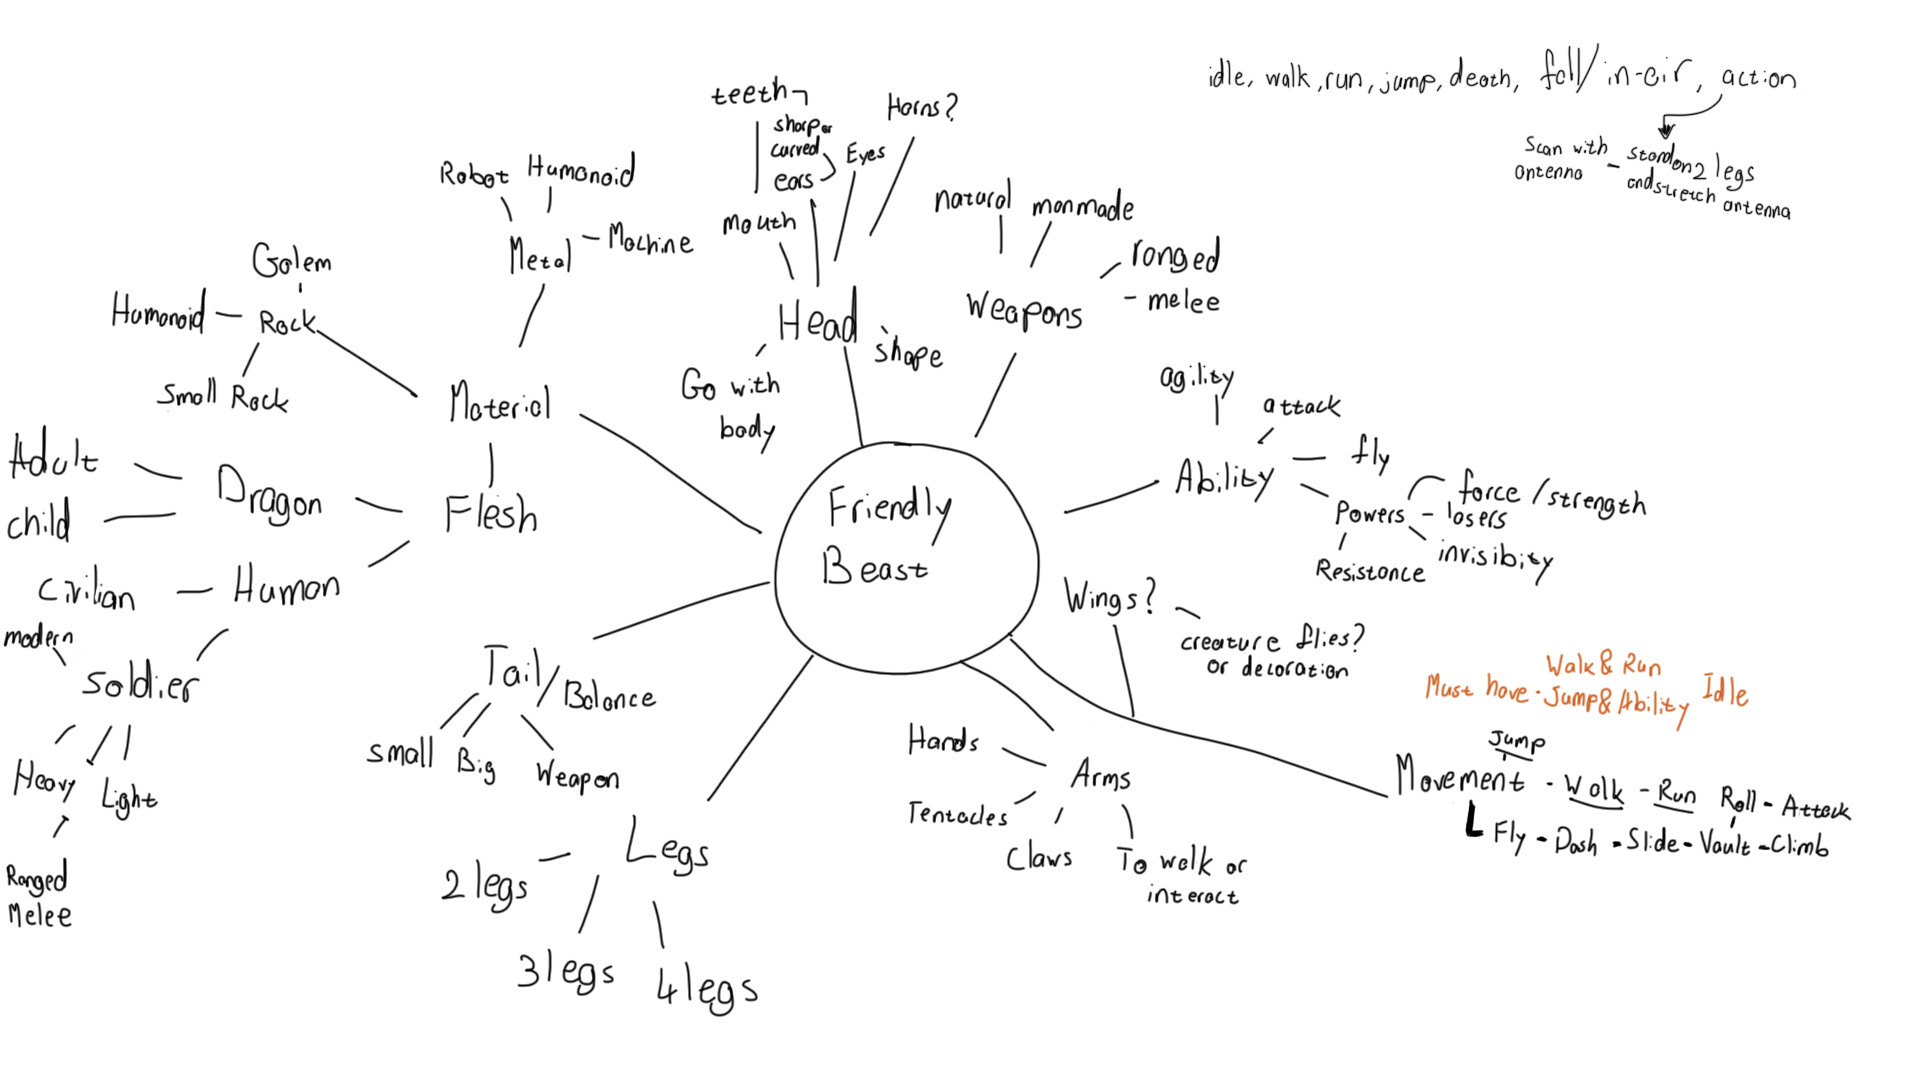 idle, walk, run, jump, death, fall/in-air, action
Scan with antenna - stand on 2 legs
and stretch antenna
teeth
sharp or
curved
ears
Eyes
Horns?
mouth
Head
shape
Go with
body
natural
manmade
ranged
- melee
Weapons
Robot
Humanoid
Metal - Machine
Golem
Humanoid - Rock
Small Rock
Material
Flesh
Adult
child
Dragon
Civilian - Human
modern
soldier
Heavy
Light
Ranged
Melee
Friendly
Beast
agility
attack
Ability - fly
Powers - lasers
force/strength
invisibity
Resistance
Wings?
creature flies?
or decoration
Walk & Run
Must have · Jump & Ability
Idle
Jump
Movement - Walk - Run Roll - Attack
Fly - Dash - Slide - Vault - Climb
Tail/Balance
small
Big
Weapon
Legs
2 legs
3 legs
4 legs
Hands
Arms
Tentacles
Claws
To walk or
interact